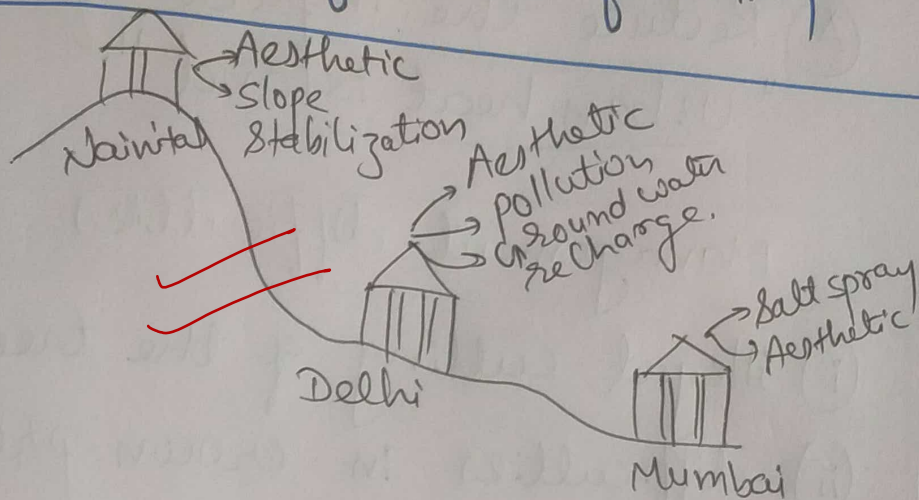 Aesthetic
Slope
Stabilization
Nainital
Aesthetic
pollution
Ground water
recharge.
Delhi
Salt spray
Aesthetic
Mumbai